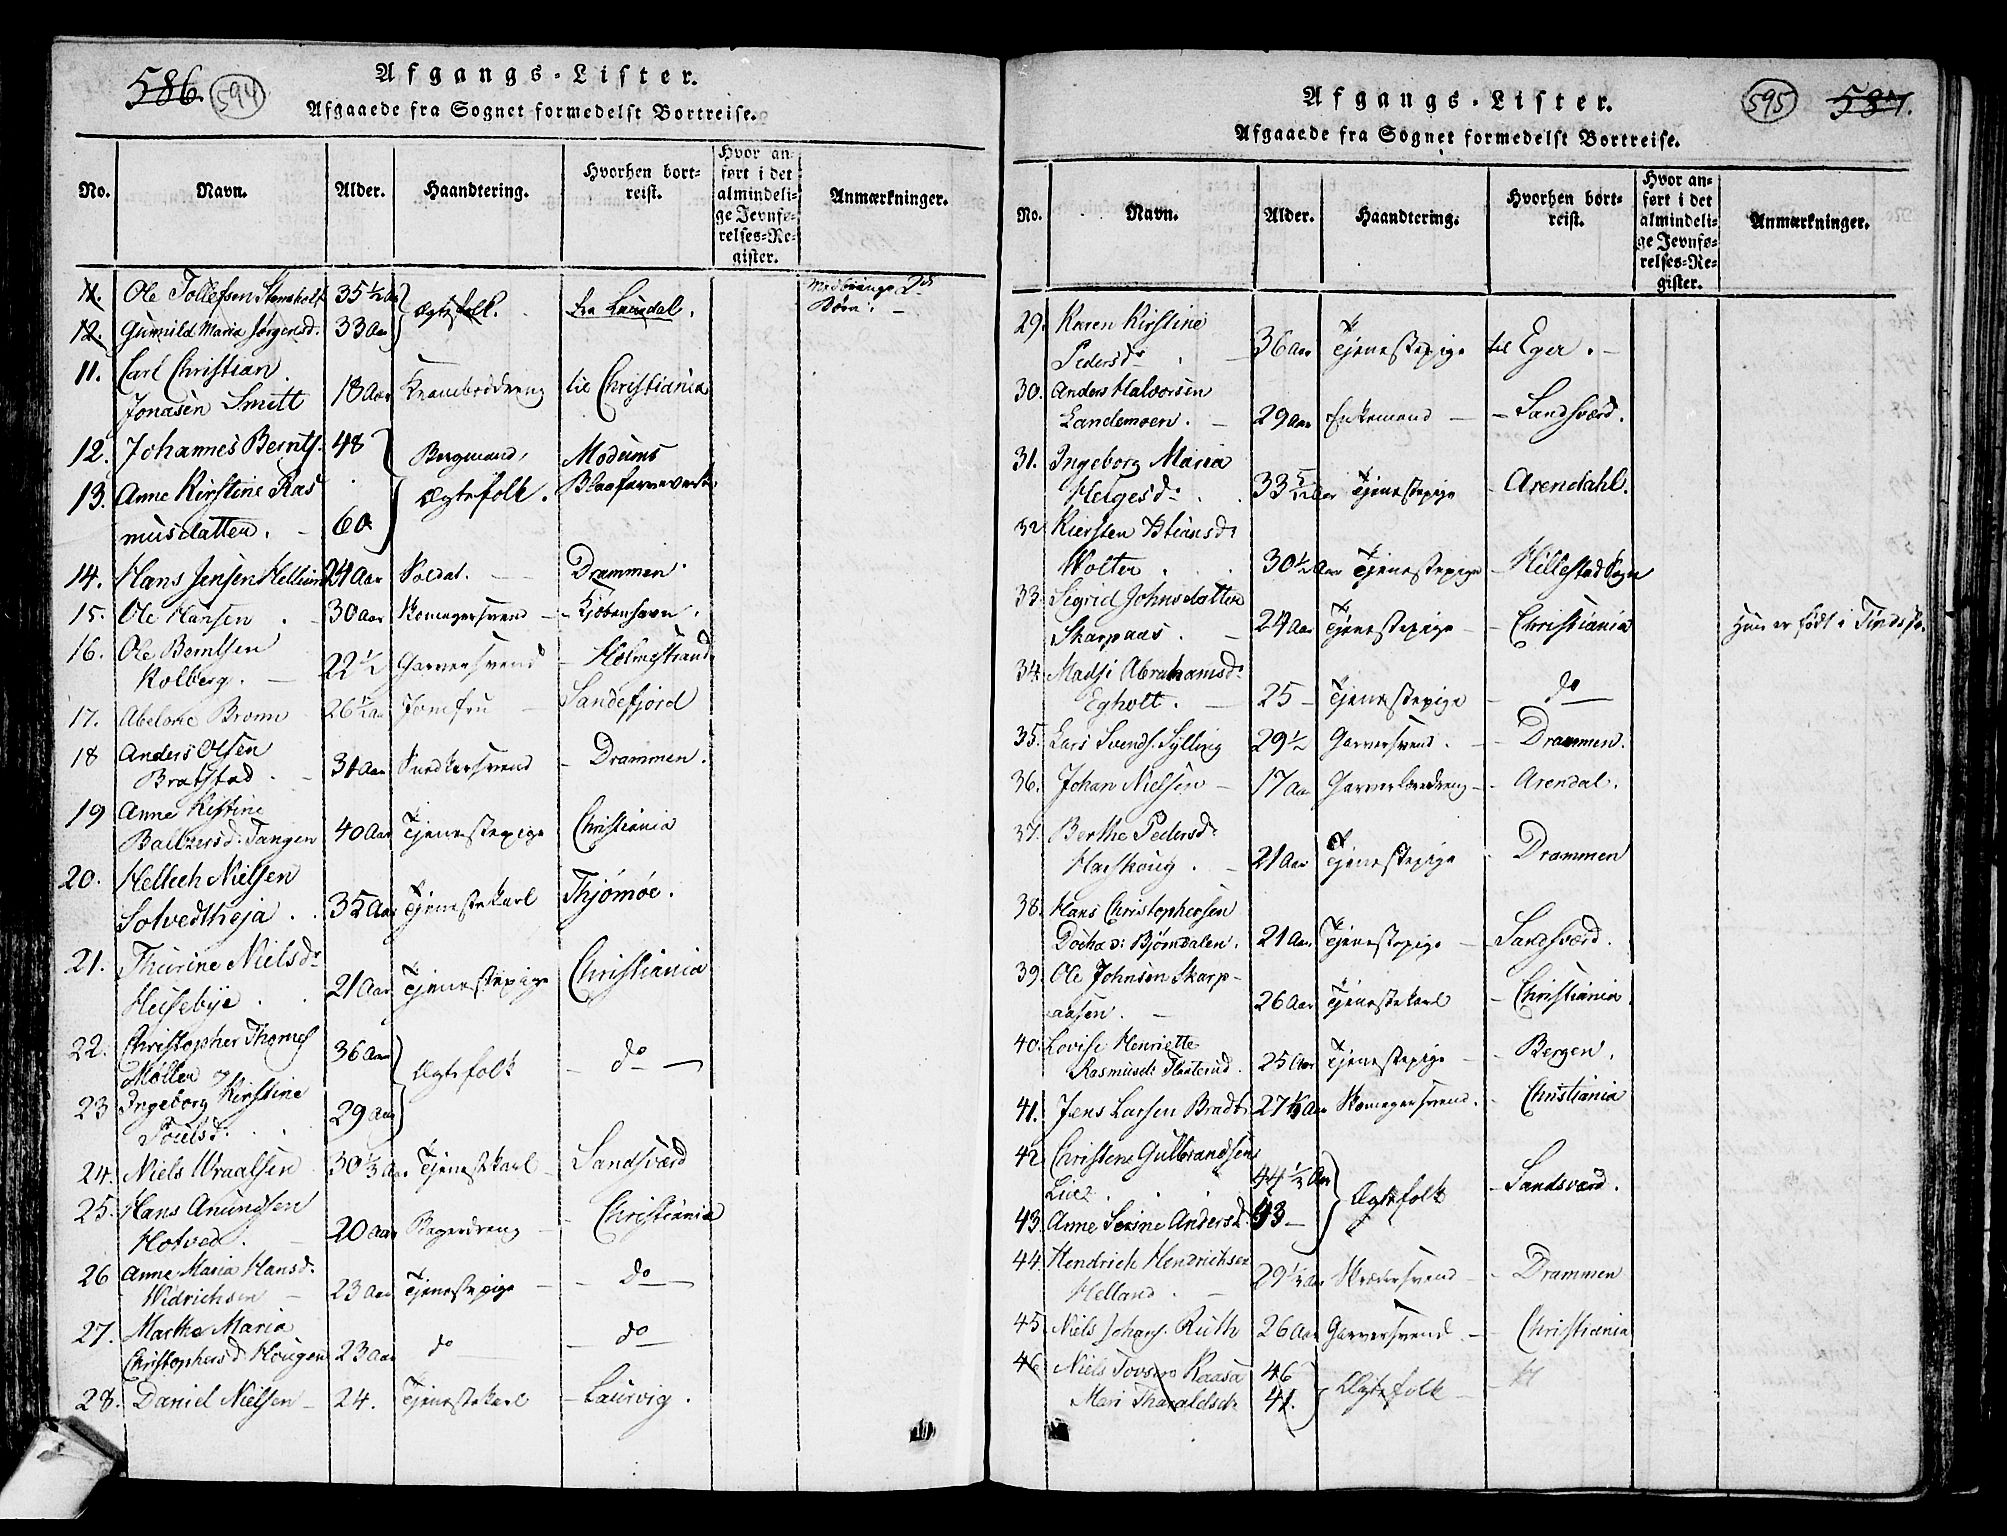 586. 594
Afgangs-Lister.
Afgaaede fra Sognet formedelst Bortreise.
No. Navn. Alder. Haandtering. Hvorhen bortreist. Hvor anført i det almindelige Jevnførelses-Register. Anmærkninger.
11. Ole Tollefsen 35 1/2 Aar Ægtefolk. fra Laurdal. Medbringe 2de
12. Gunnild Maria Jørgensd. 33 Aar Børn.
11. Carl Christian
Jonasen Smitt 18 Aar Kramboddreng til Christiania
12. Johannes Bernts. 48 Bergmand, Modums
13. Anne Kirstine Ras Ægtefolk. Blaafarveverk
musdatter. 60
14. Hans Jensen Hellum 24 Aar Soldat. Drammen
15. Ole Hansen 30 Aar Skomagersvend Kjøbenhavn.
16. Ole Berntsen
Kolberg. 22 1/2 Garversvend Holmestrand
17. Abelone Bronn 26 1/2 Aar Jomfru Sandefjord
18 Anders Olsen
Bratstad 31 Aar Snedkersvend Drammen.
19 Anne Kistine
Baltzersd. Tangen 40 Aar Tjenestepige Christiania
20. Hellech Nielsen
Solvedtheja 35 Aar Tjenestekarl Thjømøe.
21. Thurine Nielsdr
Huseбye 21 Aar Tjenestepige Christiania
22. Christopher Thomes
Møller 36 Aar Ægtefolk do
23 Ingeborg Kirstine
Poulsd. 29 Aar
24. Niels Wraalsen 30 1/3 Aar Tjenestekarl Sandsværd
25. Hans Anundsen
Hotved. 20 Aar Bagerdreng Christiania
26 Anne Maria Hansd.
Widrichsen 23 Aar Tjenestepige do
27. Marthe Maria
Christophersd. Hougen 23 Aar do do
28. Daniel Nielsen 24. Tjenestekarl Laurvig.
595 587.
Afgangs-Lister.
Afgaaede fra Sognet formedelst Bortreise.
No. Navn. Alder. Haandtering. Hvorhen bortreist. Hvor anført i det almindelige Jevnførelses-Register. Anmærkninger.
29. Karen Kirstine
Pedersdr 36 Aar Tjenestepige til Eger.
30. Anders Halvorsen
Landemoen. 29 Aar Enkemand Sandsværd.
31. Ingeborg Maria
Helgesdr 33 5/12 Aar Tjenestepige Arendahl.
32 Kiersten
Wolter 30 1/2 Aar Tjenestepige Hillestad Sogn
33. Sigrid Johnsdatter
Skarpaas. 24 Aar Tjenestepige Christiania Hun er født i Tinds
34. Madsi Abrahamsdr
Egholt. 25 Tjenestepige do
35. Lars Svends. Sylling 29 1/2 Garversvend. Drammen.
36. Johan Nielsen 17 Aar Garverlæredreng Arendal.
37. Berthe Pedersdr
Harskoug 21 Aar Tjenestepige Drammen
38. Hans Christophersen
Bjørndalen. 21 Aar Tjenestepige Sandsværd.
39. Ole Johnsen Skarp-
aasen. 26 Aar Tjenestekarl Christiania.
40. Lovise Henriette
Rasmusdr 25 Aar Tjenestepige Bergen.
41. Jens Larsen Bradt 27 Aar Skomagersvend. Christiania
42. Christen Gulbrandsen
44 1/2 Aar Ægtefolk Sandsværd.
43. Anne Serine Andersd. 43
44. Hendrich Hendrichsen
Helland. 29 1/2 Aar Skrædersvend Drammen
45. Niels Johans. Ruth 26 Aar Garversvend Christiania
46 Niels Tovsen Kaasa 46 Ægtefolk
Mari Tharaldsdr 41.